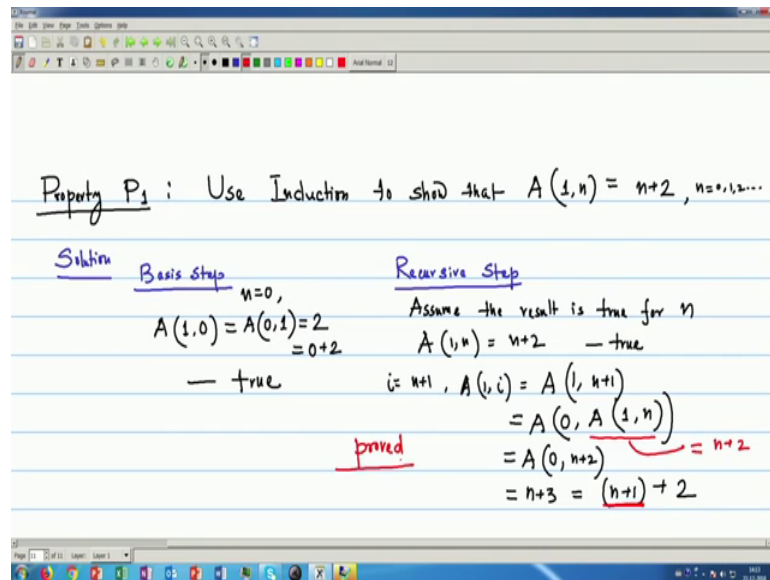 Journal
File Edit View Page Tools Options Help
Arial Normal 12
Property P1 : Use Induction to show that A(1,n) = n+2, n=0,1,2...
Solution
Basis Step
n=0,
A(1,0) = A(0,1) = 2
= 0+2
— true
Recursive Step
Assume the result is true for n
A(1,n) = n+2 — true
i= n+1, A(1,i) = A(1, n+1)
= A(0, A(1,n))
= n+2
= A(0, n+2)
= n+3 = (n+1) + 2
proved
Page 11 of 11 Layer: Layer 1